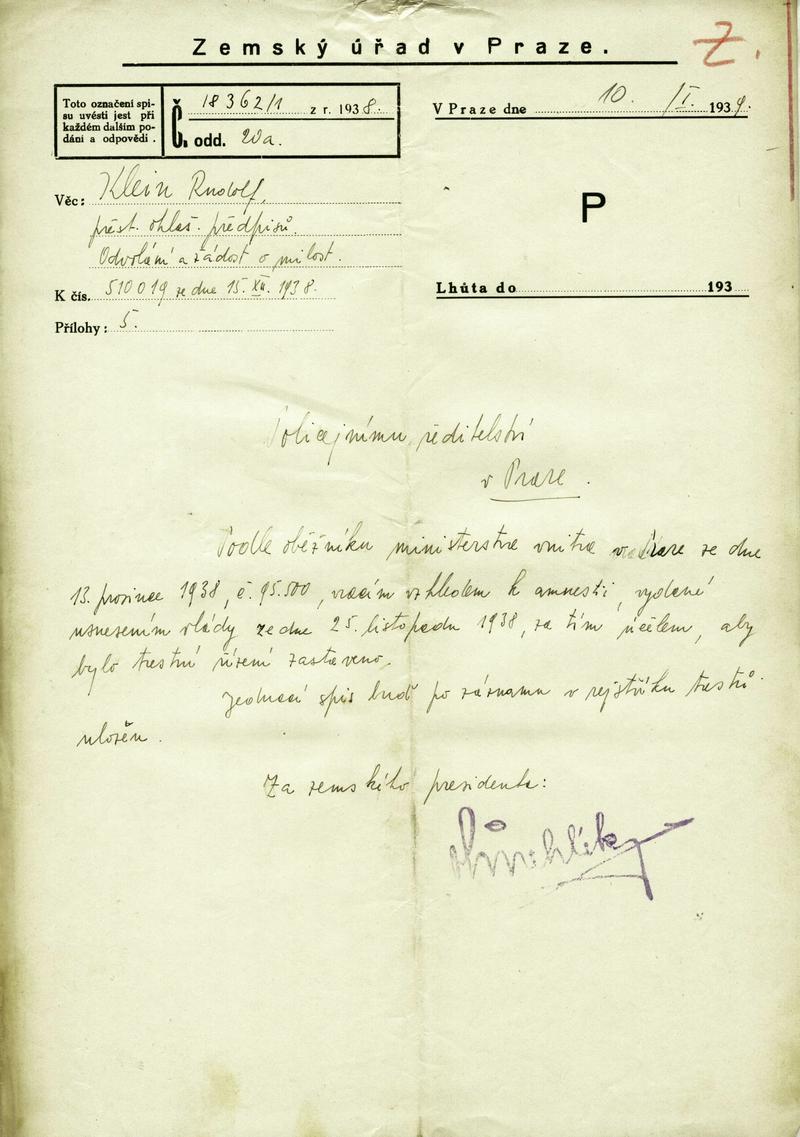 Zemský úřad v Praze.
Z.
Toto označení spi-
su uvésti jest při
každém dalším po-
dání a odpovědi.
Č. 18362/1 z r. 1938.
odd. 20a.
V Praze dne 10. /I. 1939.
Věc: Klein Rudolf,
přest. ohlaš. předpisů.
Odvolání a žádost o milost.
P
K čís. 510019 ze dne 15. XII. 1938.
Lhůta do 193
Přílohy: 5.
Policejnímu ředitelství
v Praze.
Podle oběžníku ministerstva vnitra v Praze ze dne
13. prosince 1938, č. 95.500, vracím vzhledem k amnestii, vydané
usnesením vlády ze dne 25. listopadu 1938, za tím účelem, aby
bylo trestní řízení zastaveno.
Jednací spis buď po záznamu v rejstříku trestů
uložen.
Za zemského presidenta: